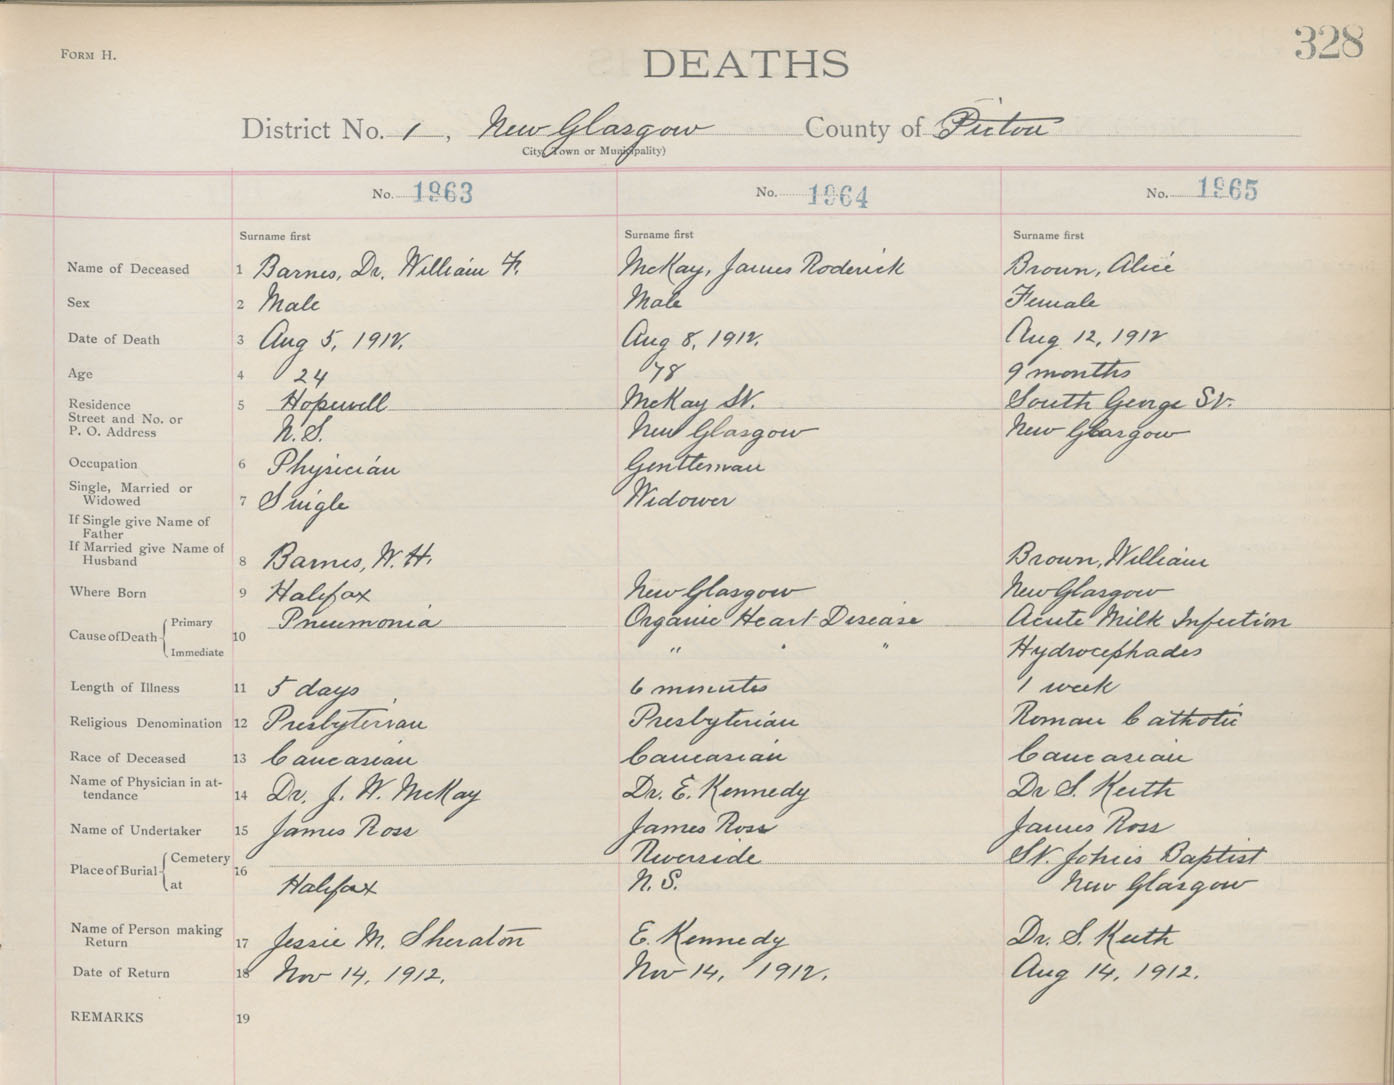 328
FORM H.
DEATHS
District No. 1, New Glasgow County of Pictou
City, Town or Municipality)
No. 1963 No. 1964 No. 1965
Surname first Surname first Surname first
Name of Deceased 1 Barnes, Dr. William F. McKay, James Roderick Brown, Alice
Sex 2 Male Male Female
Date of Death 3 Aug 5, 1912. Aug 8, 1912. Aug 12, 1912
Age 4 24 78 9 months
Residence 5 Hopewell McKay St. South George St.
Street and No. or
P. O. Address N.S. New Glasgow New Glasgow
Occupation 6 Physician Gentleman
Single, Married or
Widowed 7 Single Widower
If Single give Name of
Father
If Married give Name of
Husband 8 Barnes, W. H. Brown, William
Where Born 9 Halifax New Glasgow New Glasgow
Cause of Death Primary 10 Pneumonia Organic Heart Disease Acute Milk Infection
Immediate " " " Hydrocephades
Length of Illness 11 5 days 6 minutes 1 week
Religious Denomination 12 Presbyterian Presbyterian Roman Catholic
Race of Deceased 13 Caucasian Caucasian Caucasian
Name of Physician in at-
tendance 14 Dr. J. W. McKay Dr. E. Kennedy Dr S. Keith
Name of Undertaker 15 James Ross James Ross James Ross
Place of Burial Cemetery 16 Riverside St. John's Baptist
at Halifax N.S. New Glasgow
Name of Person making
Return 17 Jessie M. Sheraton E. Kennedy Dr. S. Keith
Date of Return 18 Nov 14, 1912. Nov 14, 1912. Aug 14, 1912.
REMARKS 19